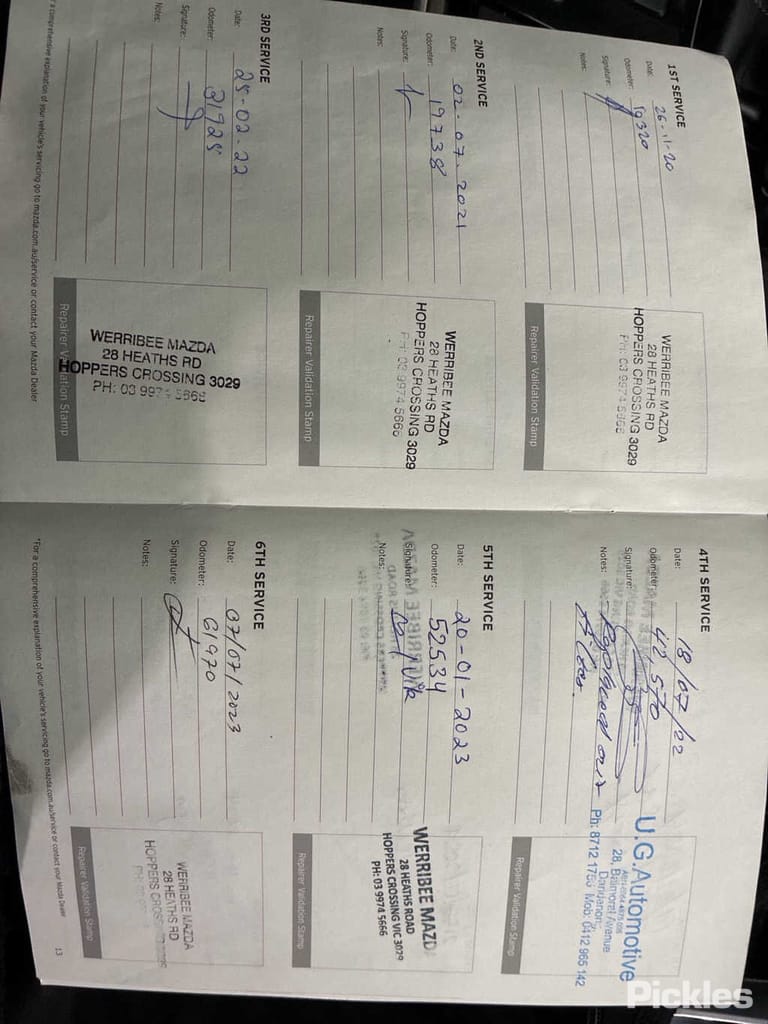 1ST SERVICE
Date: 26-11-20
Odometer:
Signature:
Notes:
WERRIBEE MAZDA
28 HEATHS RD
HOPPERS CROSSING 3029
PH: 03 9974 5666
Repairer Validation Stamp
2ND SERVICE
Date: 02-07-2021
Odometer: 19738
Signature:
Notes:
WERRIBEE MAZDA
28 HEATHS RD
HOPPERS CROSSING 3029
PH: 03 9974 5666
Repairer Validation Stamp
3RD SERVICE
Date: 25-02-22
Odometer: 31925
Signature:
Notes:
WERRIBEE MAZDA
28 HEATHS RD
HOPPERS CROSSING 3029
PH: 03 9974 5666
Repairer Validation Stamp
comprehensive explanation of your vehicle's servicing go to mazda.com.au/service or contact your Mazda Dealer
4TH SERVICE
Date: 18/07/22
Odometer: 42,570
Signature:
Notes: Replaced air
U.G.Automotive
28, Balmoral Avenue
Ph: 8712 1766 Mob: 0412 965 142
Repairer Validation Stamp
5TH SERVICE
Date: 20-01-2023
Odometer: 52534
Signature:
Notes:
WERRIBEE MAZD
28 HEATHS ROAD
HOPPERS CROSSING VIC 3029
PH: 03 9974 5666
Repairer Validation Stamp
6TH SERVICE
Date: 07/07/2023
Odometer: 61970
Signature:
Notes:
WERRIBEE MAZDA
28 HEATHS RD
HOPPERS CROSS
Repairer Validation Stamp
*For a comprehensive explanation of your vehicle's servicing go to mazda.com.au/service or contact your Mazda Dealer
13
Pickles